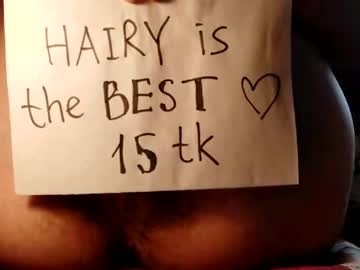 HAIRY is
the BEST ♡
15 tk